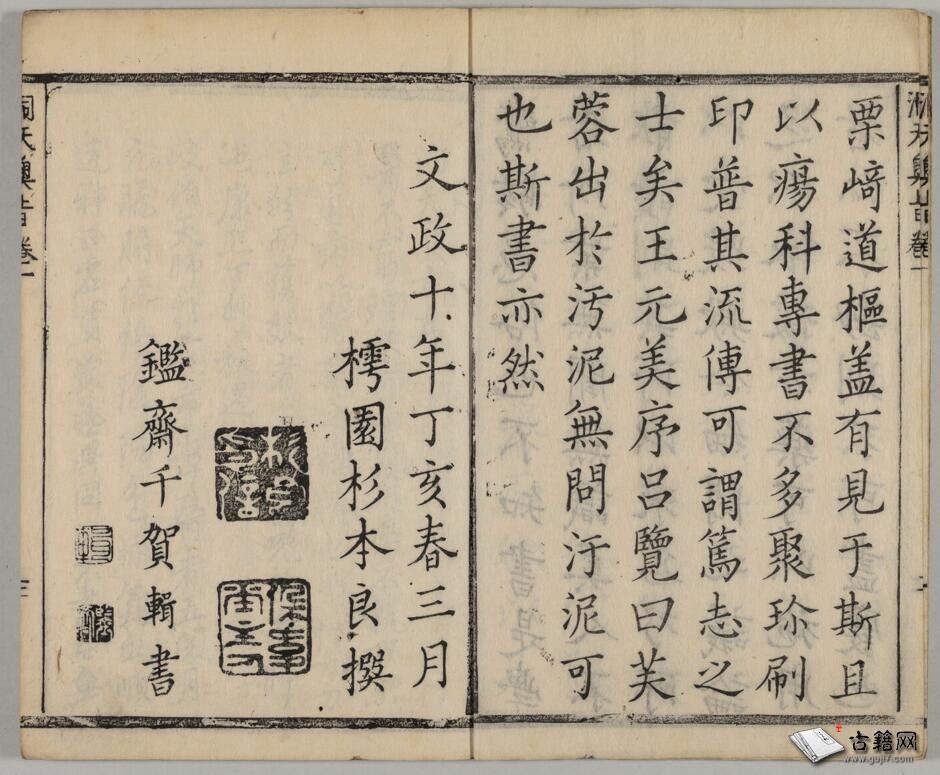 栗﨑道樞盖有見于斯且
以瘍科專書不多聚珍刷
印普其流傳可謂篤志之
士矣王元美序呂覽曰芙
蓉出於汚泥無問汙泥可
也斯書亦然
文政十年丁亥春三月
樗園杉本良撰
鑑齋千賀輯書
卷一
卷一
古籍网
www.guji7.com